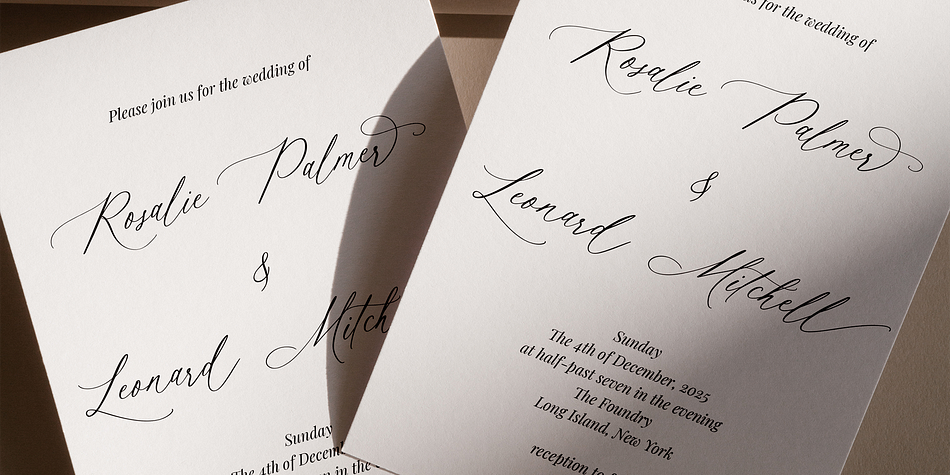 Please join us for the wedding of
Rosalie Palmer
&
Leonard Mitch
Sunday
The 4th of
in the
us for the wedding of
Rosalie Palmer
&
Leonard Mitchell
Sunday
The 4th of December, 2025
at half-past seven in the evening
The Foundry
Long Island, New York
reception to